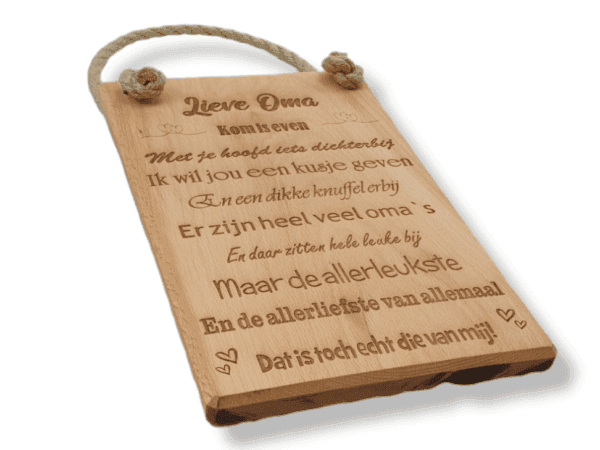 Lieve Oma
Kom is even
Met je hoofd iets dichterbij
Ik wil jou een kusje geven
En een dikke knuffel erbij
Er zijn heel veel oma`s
En daar zitten hele leuke bij
Maar de allerleukste
En de allerliefste van allemaal
Dat is toch echt die van mij!